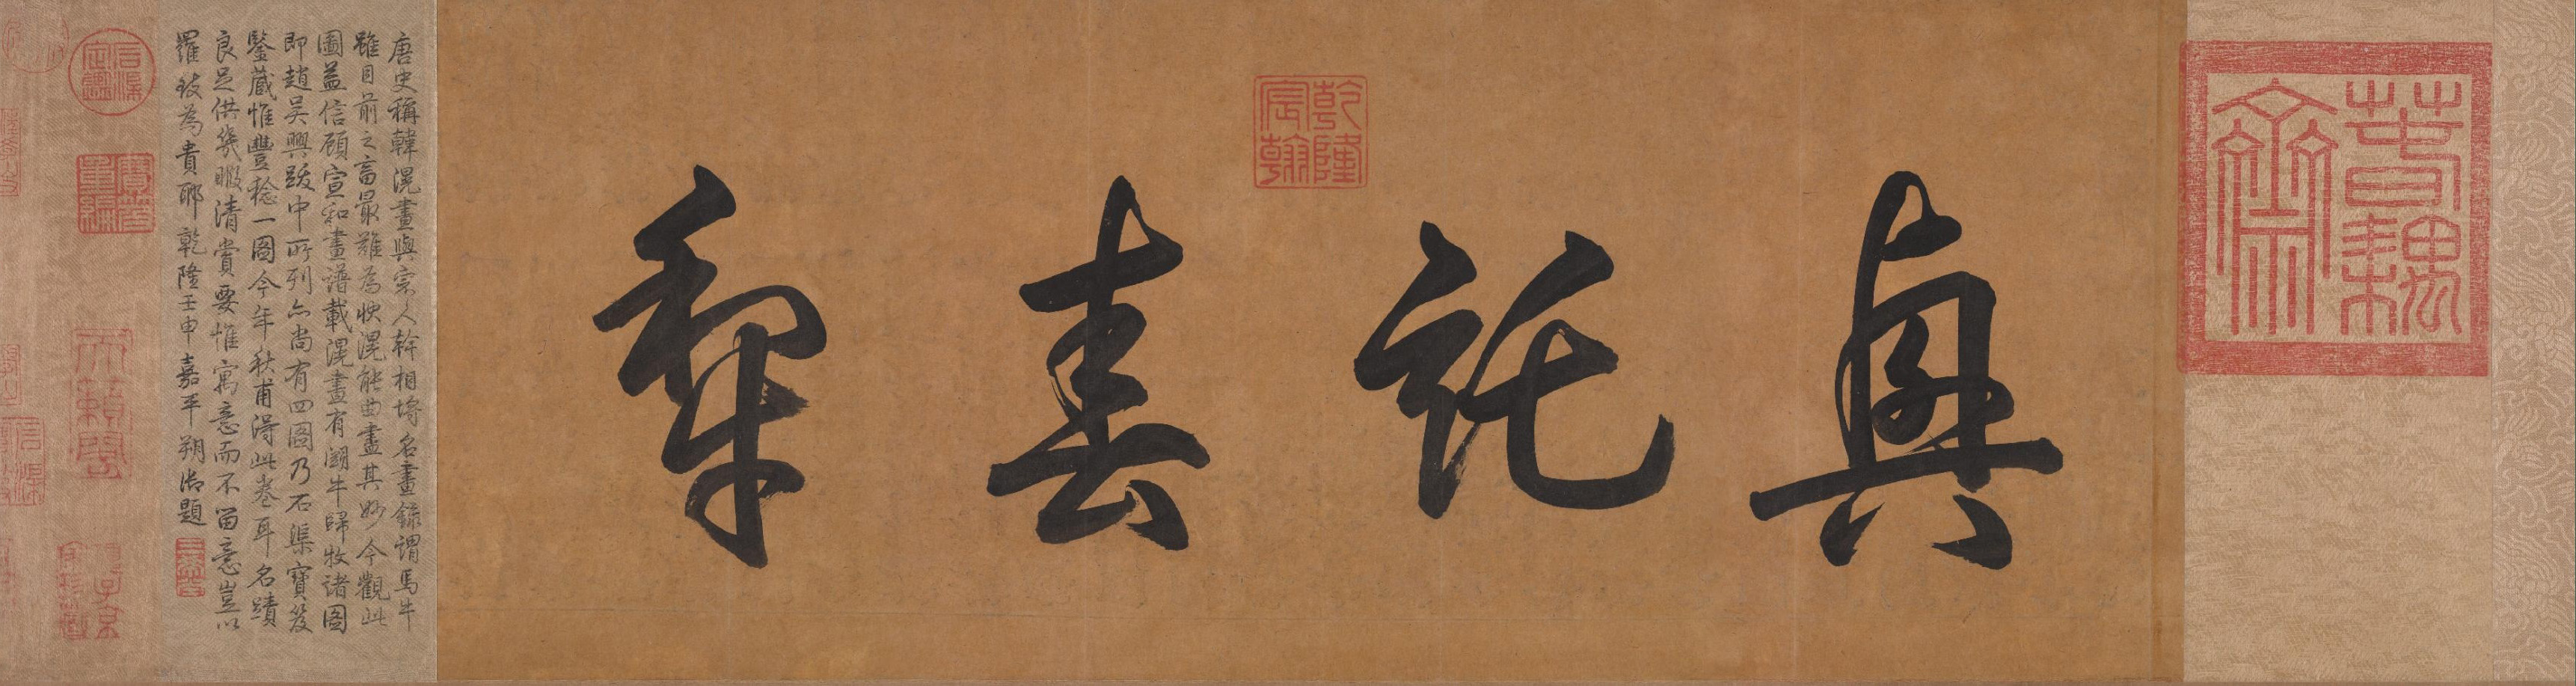 春耦齋
興託春犁
乾隆宸翰
唐史稱韓滉畫與宗人幹相埒名畫錄謂馬牛
雖目前之畜最難為狀滉能曲盡其妙今觀此
圖益信顧宣和畫譜載滉畫有闘牛歸牧諸圖
即趙吳興跋中所列亦尚有四圖乃石渠寶笈
鑒藏惟豐稔一圖今年秋甫得此卷耳名蹟
良足供幾暇清賞要惟寓意而不留意豈以
羅致為貴耶乾隆壬申嘉平朔御題
石渠定鑑
寶笈重編
天籟閣
項子京家珍藏